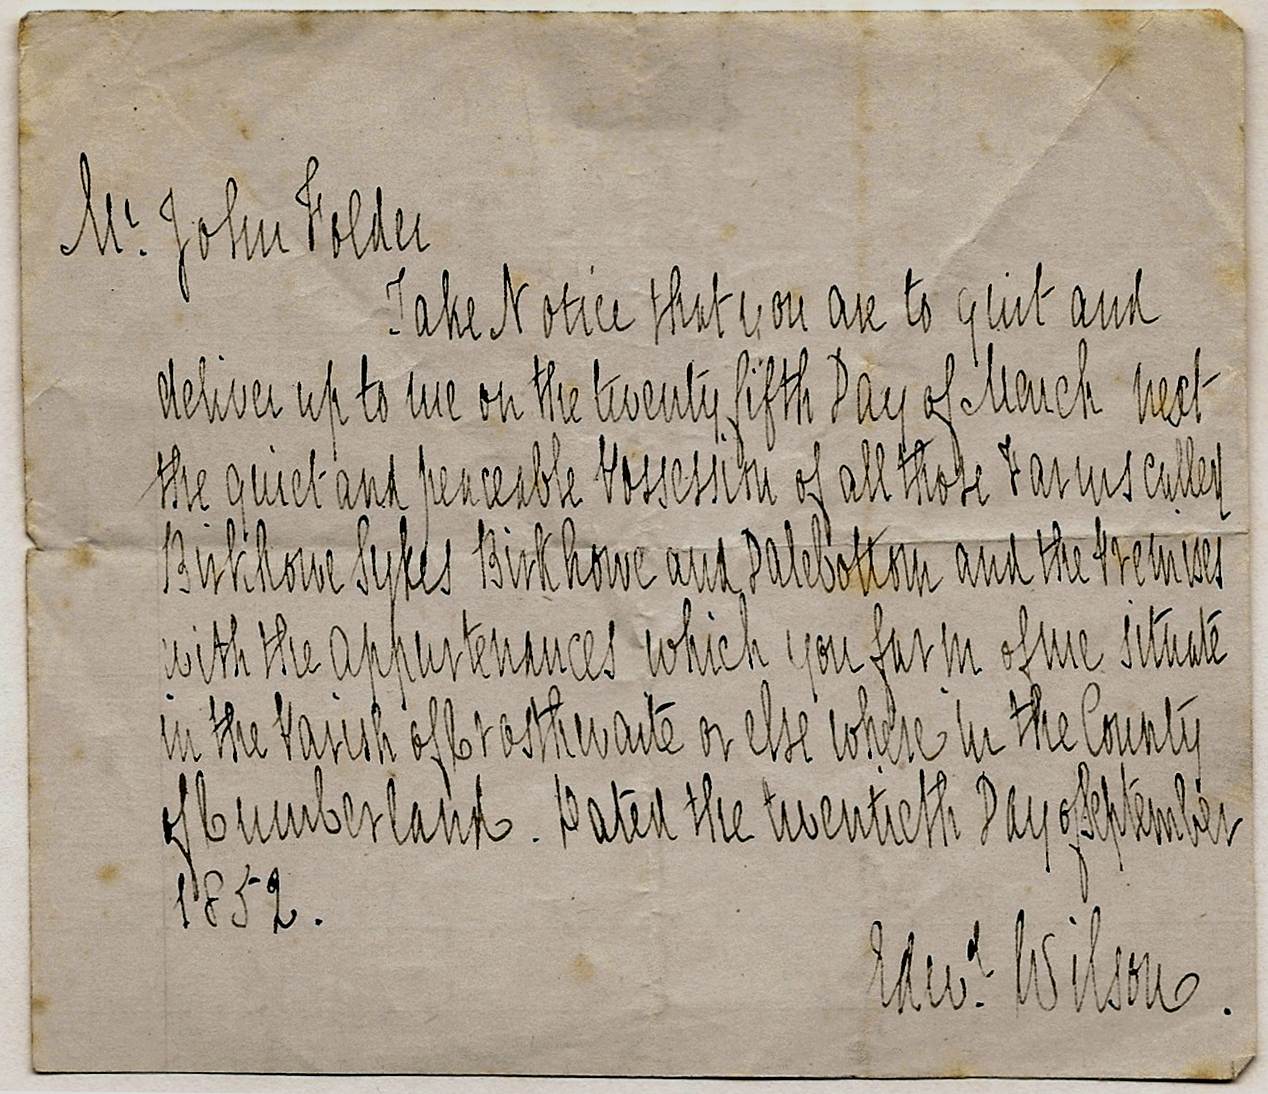 Mr. John Folder
Take Notice that you are to quit and
deliver up to me on the twenty fifth Day of March next
the quiet and peaceable Possession of all those Farms called
Birkhowe Sykes Birkhowe and Dalebottom and the Premises
with the appurtenances which you farm of me situate
in the Parish of Crosthwaite or else where in the County
of Cumberland. Dated the twentieth Day of September
1852.
Edwd. Wilson.